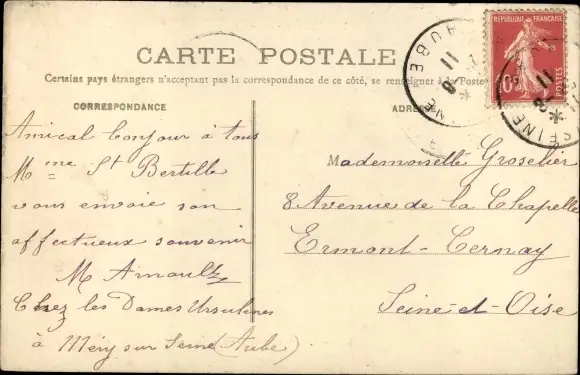 CARTE POSTALE
Certains pays étrangers n'acceptant pas la correspondance de ce côté, se renseigner à la Poste
CORRESPONDANCE
ADRESSE
REPUBLIQUE FRANÇAISE
10
POSTES
AUBE
11
SEINE
Amical bonjour à tous
Mme St Bertille
vous envoie son
affectueux souvenir
M Arnoult
Chez les Dames Ursulines
à Méry sur Seine (Aube)
Mademoiselle Groselier
8 Avenue de la Chapelle
Ermont-Cernay
Seine-et-Oise